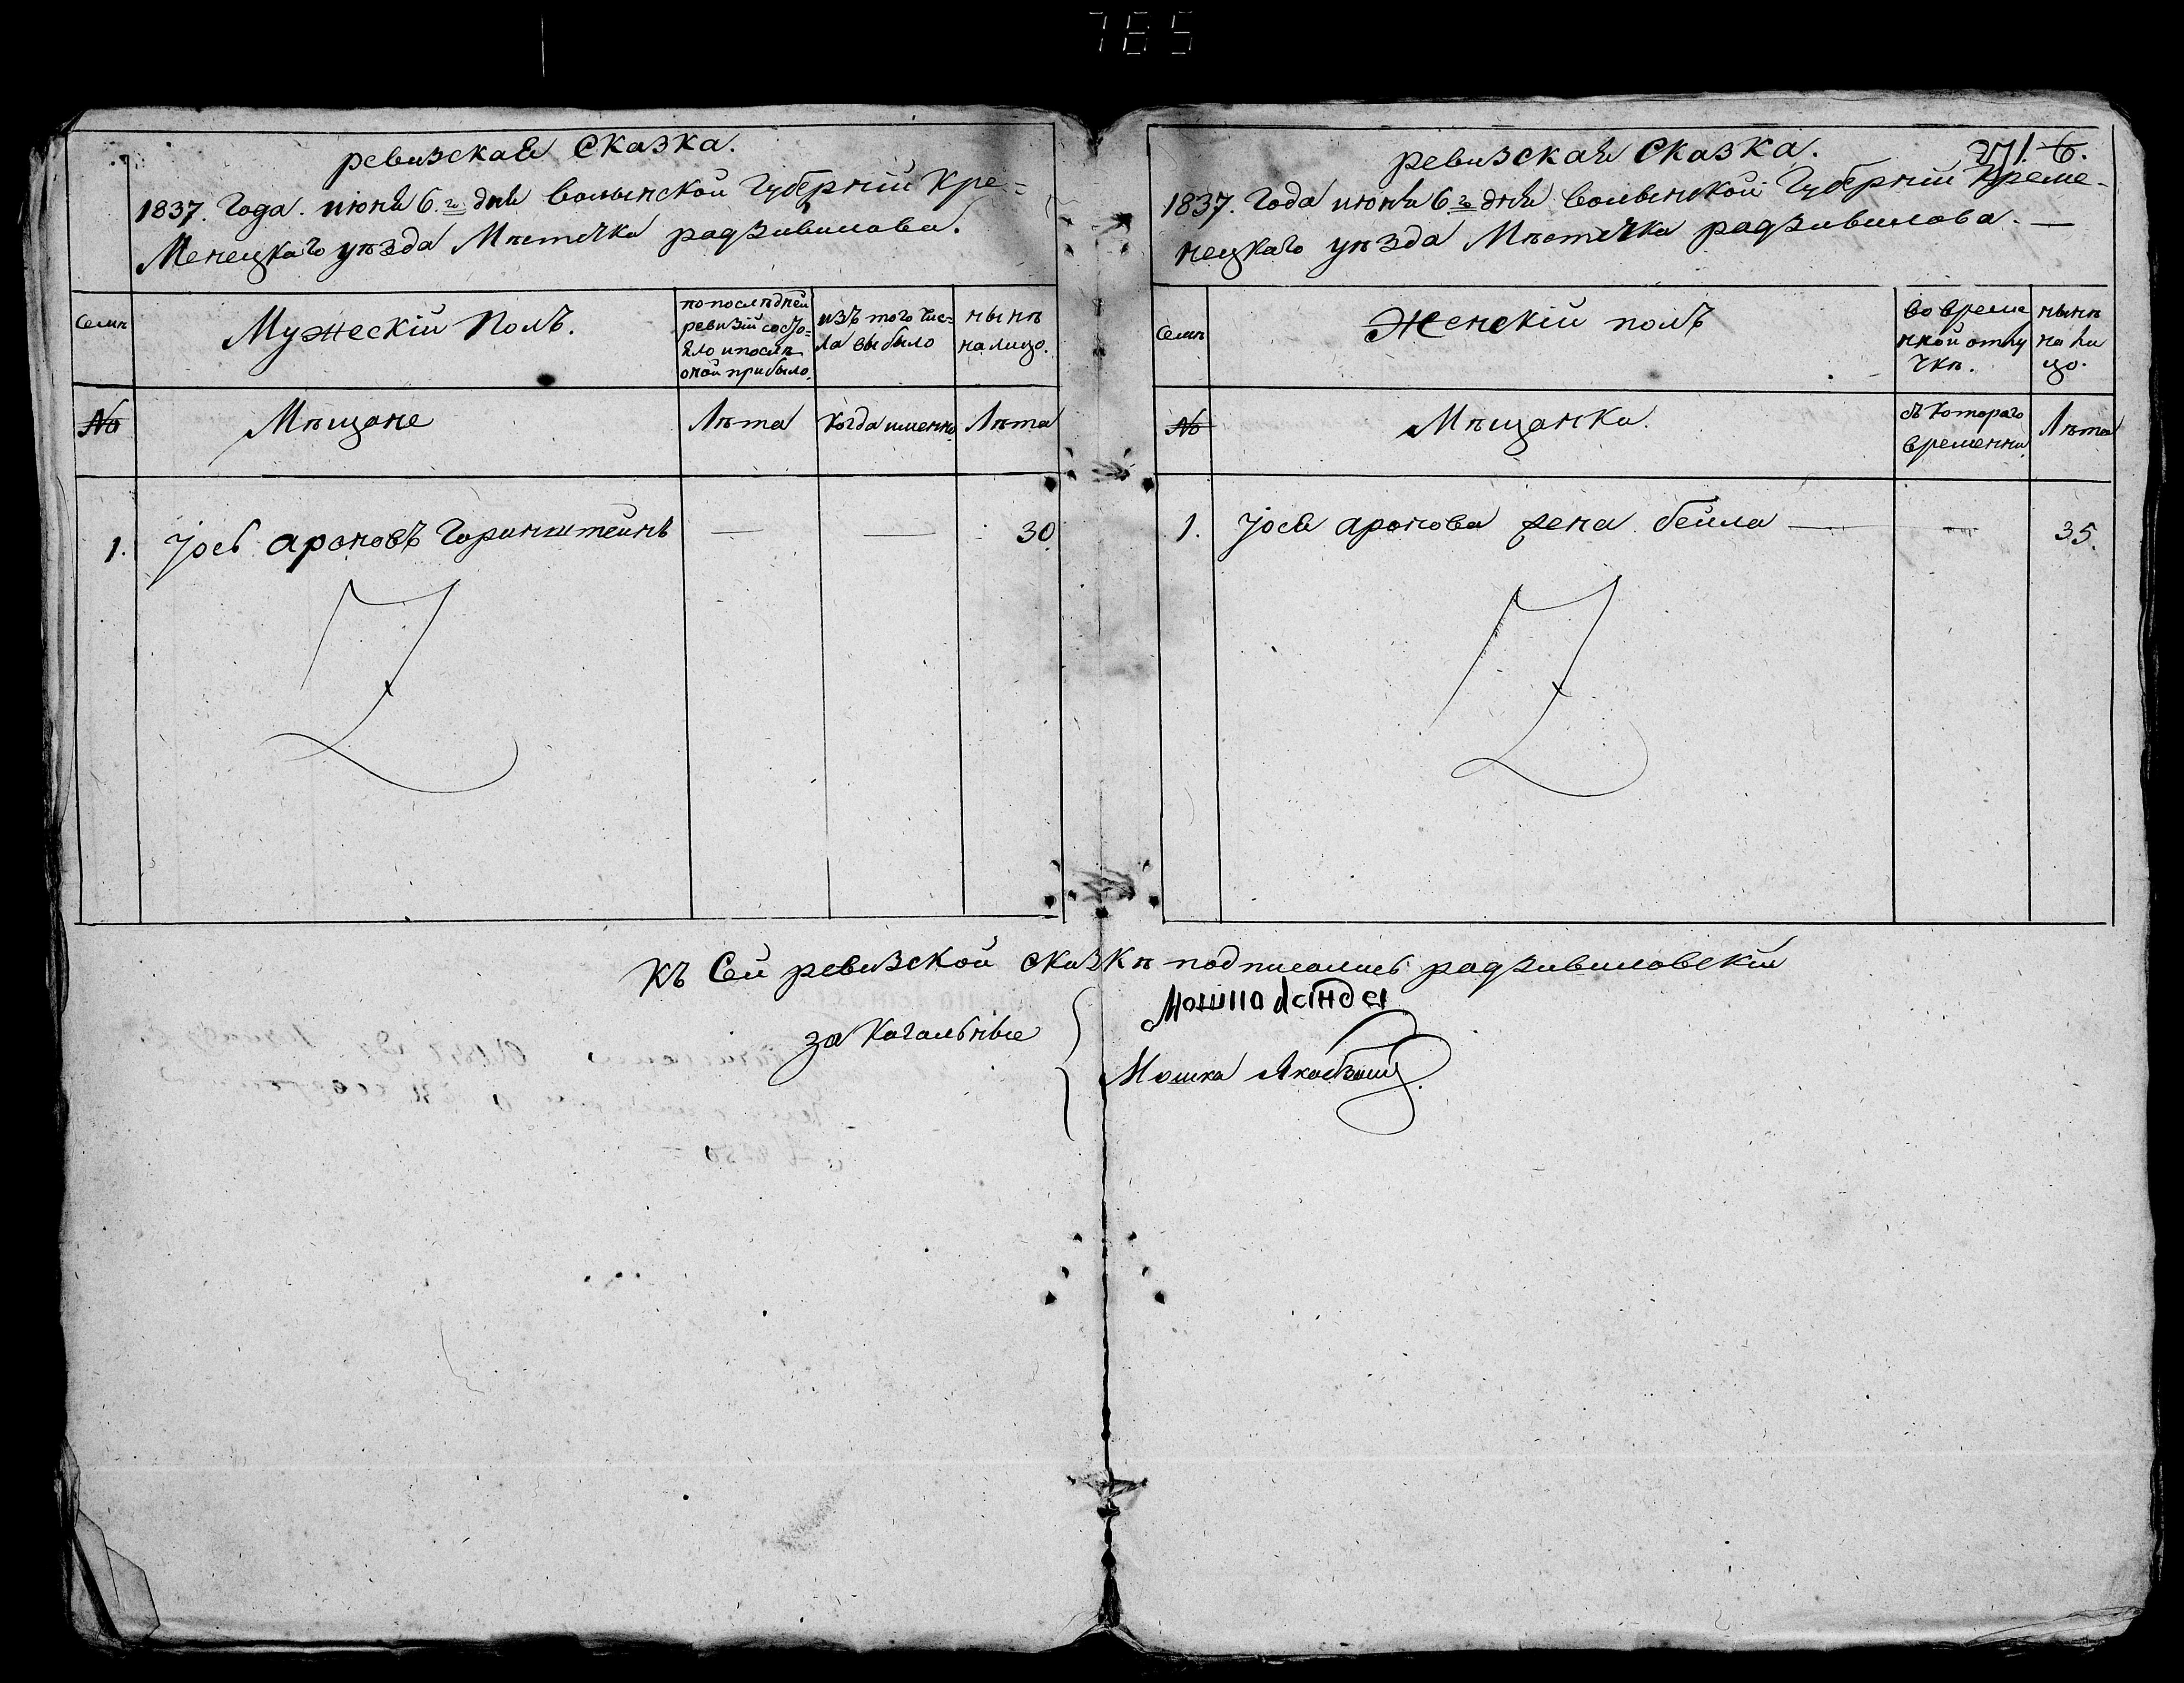 785
ревизская Сказка.
1837. Года. июня 6.го дня волынской Губернiи Кре=
Менецкаго уѣзда Мѣстечка радзивилова.
Семьи
Мужескiй Полъ.
по последней
ревизiи состо=
яло и послѣ
оной прибыло.
изъ того чис=
ла выбыло
нынѣ
на лицо.
№
Мѣщане
Лѣта
Когда именно
Лѣта
1. Iось ароновъ Горинштейнъ — — 30.
271. 6.
ревизская Сказка.
1837. Года июня 6го дня волынской Губернiи Креме-
нецкаго уѣзда Мѣстечка радзивилова. —
Семьи
Женскiй полъ
во време
нной отлу
чкѣ.
нынѣ
на ли
цо.
№
Мѣщанки.
съ котораго
временни
Лѣта
1. Iося аронова жена бейла — — 35.
Къ Сей ревизской сказкѣ подписались радзивиловскiи
за Кагальные
Мошко Ландa
Мошка